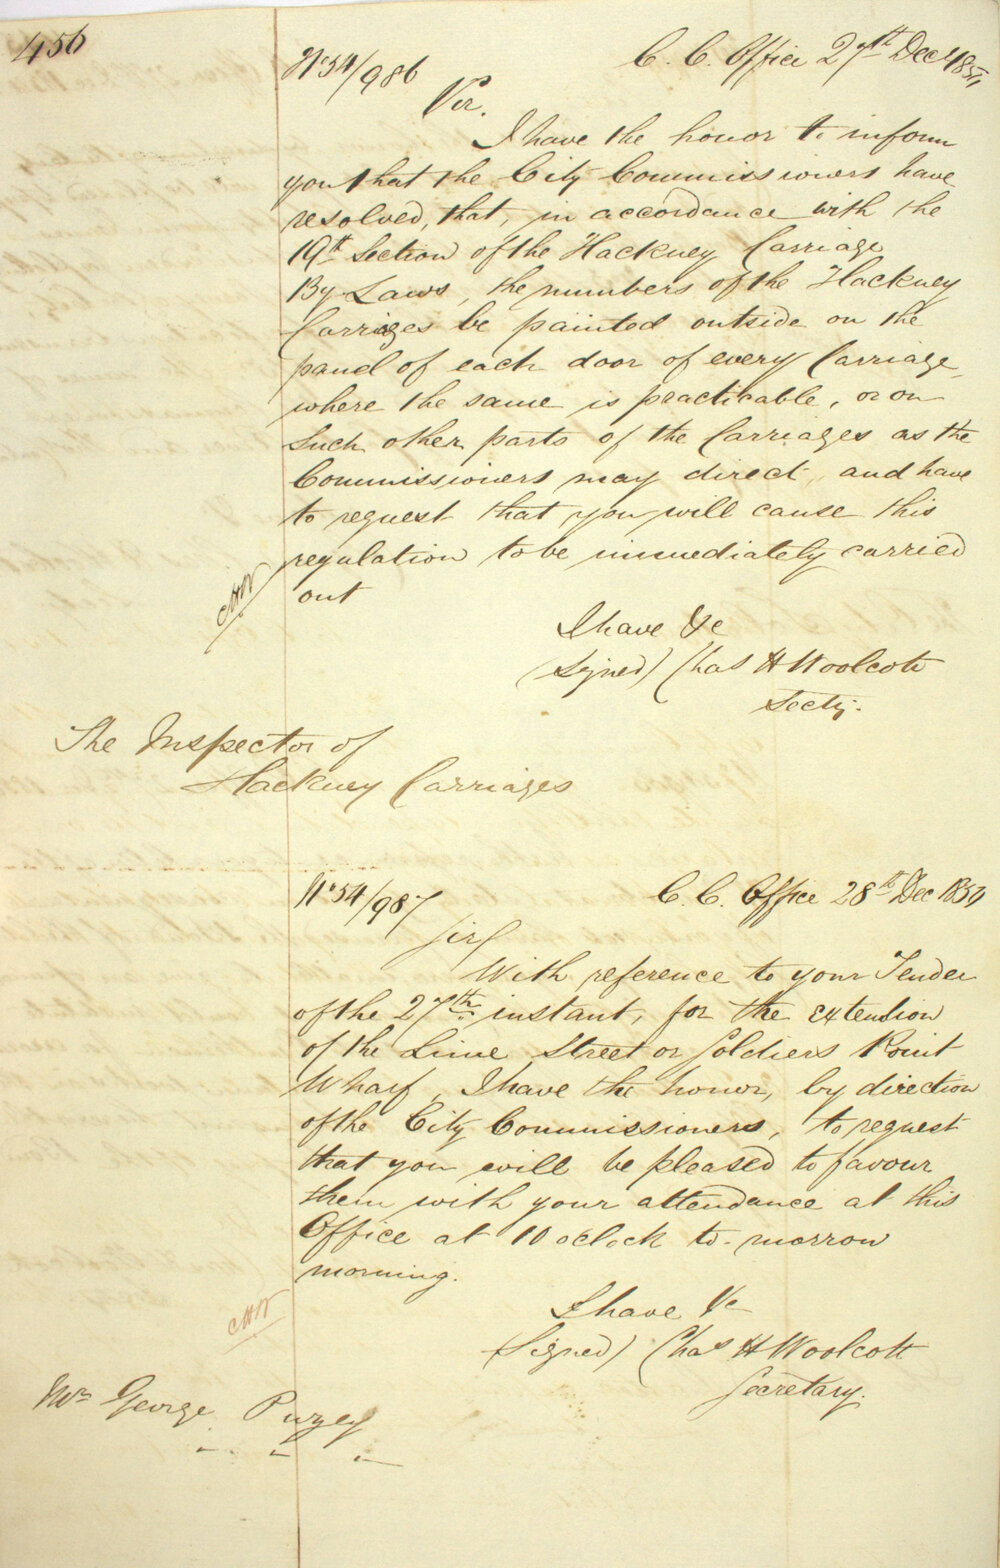 456
No 54/986
C. C. Office 27th Dec 1854
Sir,
I have the honor to inform
you that the City Commissioners have
resolved, that, in accordance with the
19th Section of the Hackney Carriage
By Laws, the numbers of the Hackney
Carriages be painted outside on the
panel of each door of every Carriage
where the same is practicable, or on
such other parts of the Carriages as the
Commissioners may direct, and have
to request that you will cause this
regulation to be immediately carried
out
CHW
I have &c
(Signed) Chas H Woolcott
Secty.
The Inspector of
Hackney Carriages
No 54/987
C. C. Office 28th Dec 1854
Sir/
With reference to your Tender
of the 27th instant, for the extension
of the Lime Street or Soldiers Point
Wharf, I have the honor, by direction
of the City Commissioners, to request
that you will be pleased to favour
them with your attendance at this
Office at 10 oclock to-morrow
morning.
CHW
I have &c
(Signed) Chas H Woolcott
Secretary.
Mr George Puzey